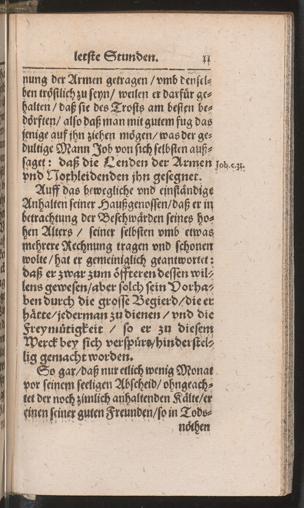 letste Stunden. 11
nung der Armen getragen / vmb densel-
ben tröstlich zu seyn / weilen er darfür ge-
halten / daß sie des Trosts am besten be-
dörfften / also daß man mit gutem fug das
jenige auf jhn ziehen mögen / was der ge-
dultige Mann Job von sich selbsten auß-
saget: daß die Lenden der Armen
vnd Nothleidenden jhn gesegnet.
Job. c. 31.
Auff das bewegliche vnd einständige
Anhalten seiner Haußgenossen / daß er in
betrachtung der Beschwärden seines ho-
hen Alters / seiner selbsten vmb etwas
mehrere Rechnung tragen vnd schonen
wolte / hat er gemeiniglich geantwortet:
daß er zwar zum öffteren dessen wil-
lens gewesen / aber solch sein Vorha-
ben durch die grosse Begierd / die er
hätte / jederman zu dienen / vnd die
Freymütigkeit / so er zu diesem
Werck bey sich verspürt / hinderstel-
lig gemacht worden.
So gar / daß nur etlich wenig Monat
vor seinem seeligen Abscheid / ohngeach-
tet der noch zimlich anhaltenden Kälte / er
einen seiner guten Freunden / so in Tods-
nöthen